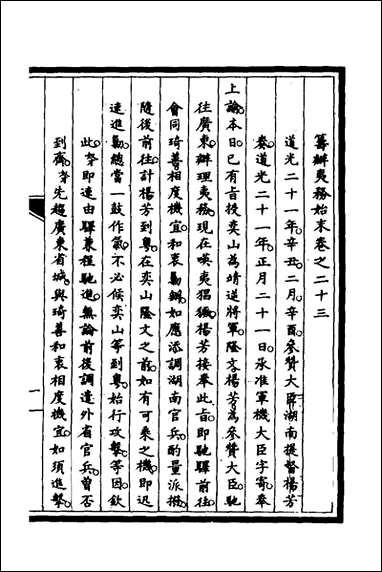 籌辦夷務始末卷之二十三
道光二十一年辛丑二月辛酉參贊大臣湖南提督楊芳
奏道光二十一年正月二十一日承准軍機大臣字寄奉
上諭本日已有旨授奕山為靖逆將軍隆文楊芳為參贊大臣馳
往廣東辦理夷務現在𠸄夷猖獗楊芳接奉此旨即馳驛前往
會同琦善相度機宜和衷勦辦如應添調湖南官兵酌量派撥
隨後前往計楊芳到粵在奕山隆文之前如有可乘之機即迅
速進勦總當一鼓作氣不必候奕山等到粵始行攻擊等因欽
此即速由驛兼程馳進無論前後調遣外省官兵曾否
到齊先趨廣東省城與琦善和衷相度機宜如須進擊
一